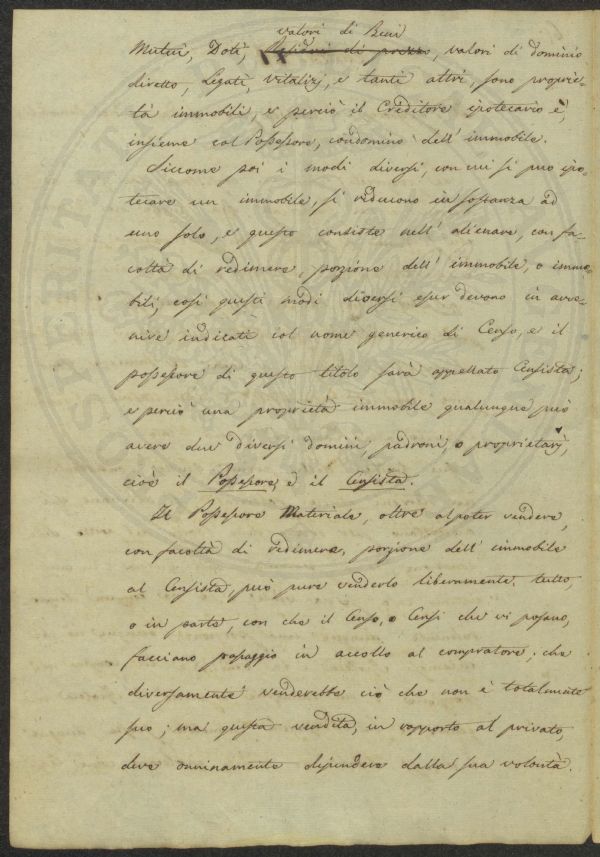 valori di Beni
Mutui, Doti, Residui di prezzo, valori di dominio
diretto, Legati, Vitalizj, e tanti altri, sono proprie-
tà immobili, e perciò il Creditore ipotecario è,
insieme col Possessore, condomino dell' immobile.
Siccome poi i modi diversi, con cui si può ipo-
tecare un immobile, si riducono in sostanza ad
uno solo, e questo consiste nell' alienare, con fa-
coltà di redimere, porzione dell' immobile, o immo-
bili, così questi modi diversi esser devono in avve-
nire indicati col nome generico di Censo, e il
possessore di questo titolo sarà appellato Censista;
e perciò una proprietà immobile qualunque può
avere due diversi domini padroni, o proprietarj,
cioè il Possessore, e il Censista.
Il Possessore Materiale, oltre al poter vendere,
con facoltà di redimere, porzione dell' immobile
al Censista, può pure venderlo liberamente, tutto,
o in parte, con che il Censo, o Censi che vi posano,
facciano passaggio in accollo al compratore; che
diversamente venderebbe ciò che non è totalmente
suo; ma questa vendita, in rapporto al privato,
deve onninamente dipendere dalla sua volontà.